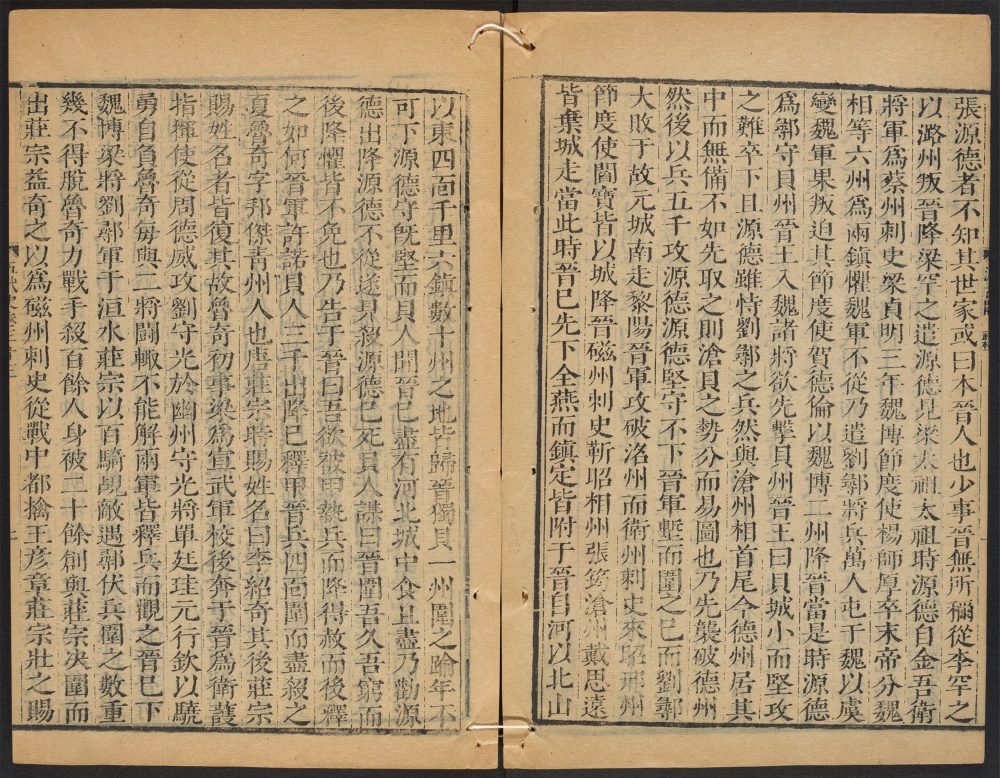 張源德者不知其世家或曰本晉人也少事晉無所稱從李罕之
以潞州叛晉降梁罕之遣源德見梁太祖太祖時源德自金吾衛
將軍爲蔡州刺史梁貞明三年魏博節度使楊師厚卒末帝分魏
相等六州爲兩鎭懼魏軍不從乃遣劉鄩將兵萬人屯于魏以虞
變魏軍果叛迫其節度使賀德倫以魏博二州降晉當是時源德
爲鄩守貝州晉王入魏諸將欲先擊貝州晉王曰貝城小而堅攻
之難卒下且源德雖恃劉鄩之兵然與滄州相首尾今德州居其
中而無備不如先取之則滄貝之勢分而易圖也乃先襲破德州
然後以兵五千攻源德源德堅守不下晉軍塹而圍之已而劉鄩
大敗于故元城南走黎陽晉軍攻破洺州而衞州刺史來昭邢州
節度使閻寶皆以城降晉磁州刺史靳昭相州張筠滄州戴思遠
皆棄城走當此時晉已先下全燕而鎭定皆附于晉自河以北山
以東四面千里六鎭數十州之地皆歸晉獨貝一州圍之踰年不
可下源德守旣堅而貝人聞晉已盡有河北城中食且盡乃勸源
德出降源德不從遂見殺源德已死貝人謀曰晉圍吾久吾窮而
後降懼皆不免也乃告于晉曰吾欲被甲執兵而降得赦而後釋
之如何晉軍許諾貝人三千出降已釋甲晉兵四面圍而盡殺之
夏魯奇字邦傑青州人也唐莊宗時賜姓名曰李紹奇其後莊宗
賜姓名者皆復其故魯奇初事梁爲宣武軍校後奔于晉爲衞護
指揮使從周德威攻劉守光於幽州守光將單廷珪元行欽以驍
勇自負魯奇每與二將鬭輒不能解兩軍皆釋兵而觀之晉已下
魏博梁將劉鄩軍于洹水莊宗以百騎覘敵遇鄩伏兵圍之數重
幾不得脫魯奇力戰手殺百餘人身被二十餘創與莊宗決圍而
出莊宗益奇之以爲磁州刺史從戰中都擒王彦章莊宗壯之賜